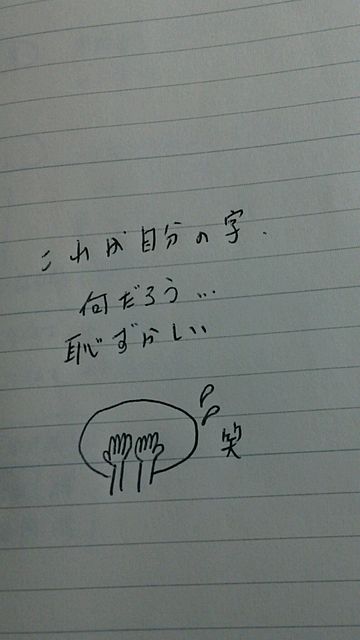 これが自分の字.
何だろう...
恥ずかしい
笑